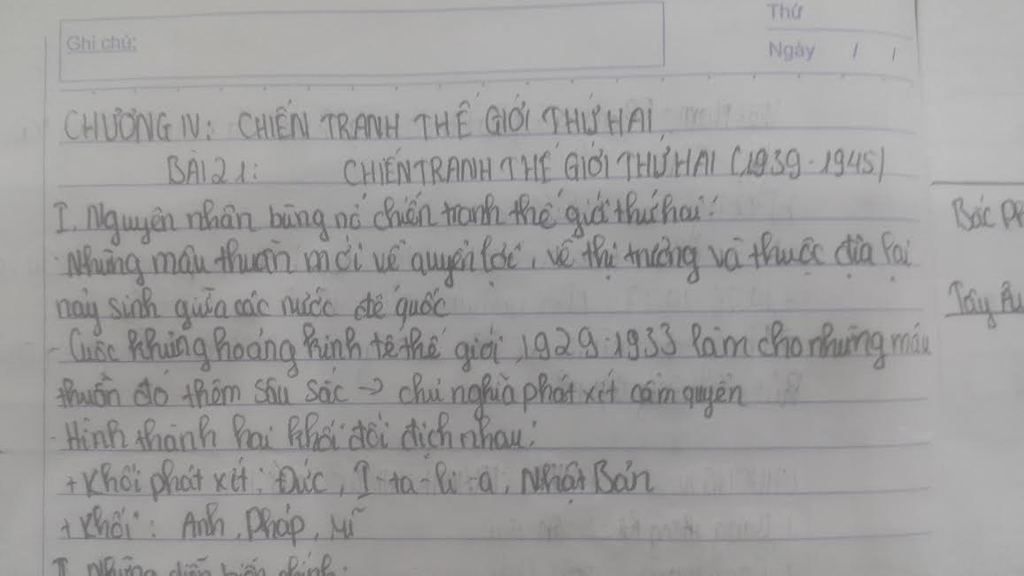 Thứ
Ghi chú:
Ngày / /
CHƯƠNG IV: CHIẾN TRANH THẾ GIỚI THỨ HAI
BÀI 21: CHIẾN TRANH THẾ GIỚI THỨ HAI (1939-1945)
I. Nguyên nhân bùng nổ chiến tranh thế giới thứ hai:
- Những mâu thuẫn mới về quyền lợi, về thị trường và thuộc địa lại
nảy sinh giữa các nước đế quốc
- Cuộc khủng hoảng kinh tế thế giới 1929-1933 làm cho những mâu
thuẫn đó thêm sâu sắc → chủ nghĩa phát xít cầm quyền
- Hình thành hai khối đối địch nhau:
+ Khối phát xít: Đức, I-ta-li-a, Nhật Bản
+ Khối: Anh, Pháp, Mĩ
II. Những diễn biến chính:
Bắc
Tây Âu